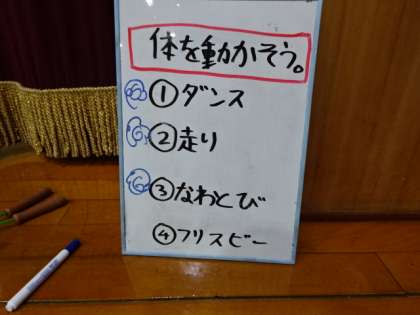 体を動かそう。
①ダンス
②走り
③なわとび
④フリスビー